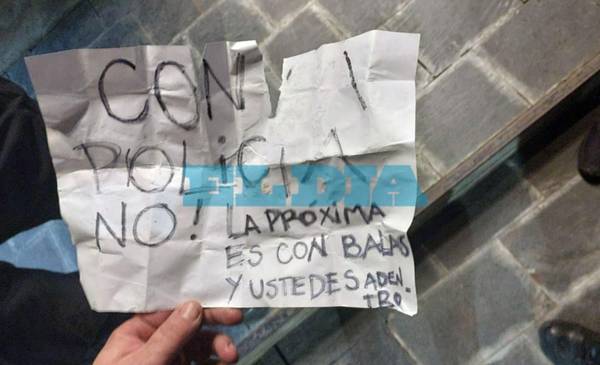 CON
POLICIA
NO! LA PRÓXIMA
ES CON BALAS
Y USTEDES ADEN-
TRO
EL DIA